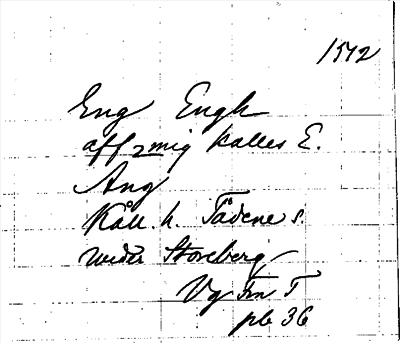 1542
Eng Engh
aff mig kalles E.
Äng
Kåll. h. Tådene s.
under Storeberg
Vg Fm T
pb 36